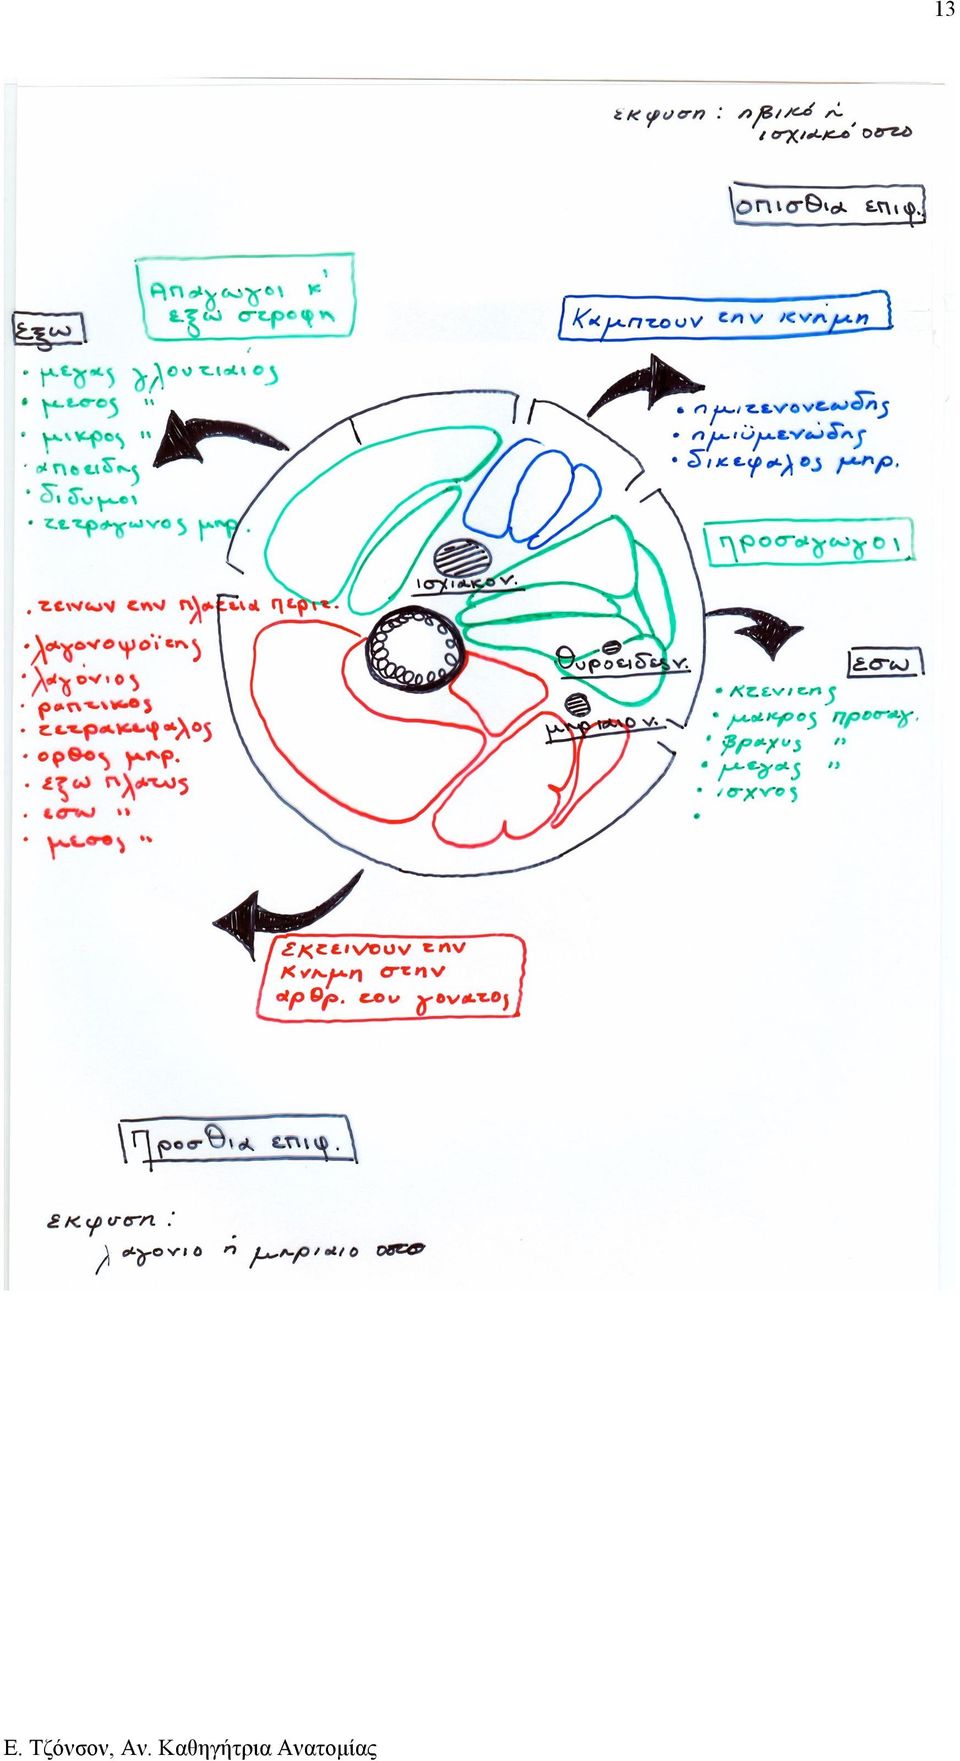 13
εκφυση: ηβικό ή
ισχιακό οστο
οπισθια επιφ.
Απαγωγοι κ'
εξω στροφη
εξω
• μεγας γλουτιαίος
• μεσος "
• μικρος "
• αποειδης
• διδυμοι
• τετραγωνος μηρ.
Καμπτουν την κνήμη
• ημιτενοντωδης
• ημιϋμενώδης
• δικεφαλος μηρ.
Προσαγωγοι
εσω
• κτενιτης
• μακρος προσαγ.
• βραχυς "
• μεγας "
• ισχνος
•
ισχιακο ν.
θυροειδες ν.
μηριαιο ν.
• τεινων την πλατεια περιτ.
• λαγονοψοϊτης
• λαγόνιος
• ραπτικος
• τετρακεφαλος
• ορθος μηρ.
• εξω πλατυς
• εσω "
• μεσος "
Εκτεινουν την
κνημη στην
αρθρ. του γονατος
Προσθια επιφ.
εκφυση:
λαγονιο ή μηριαιο οστο
Ε. Τζόνσον, Αν. Καθηγήτρια Ανατομίας